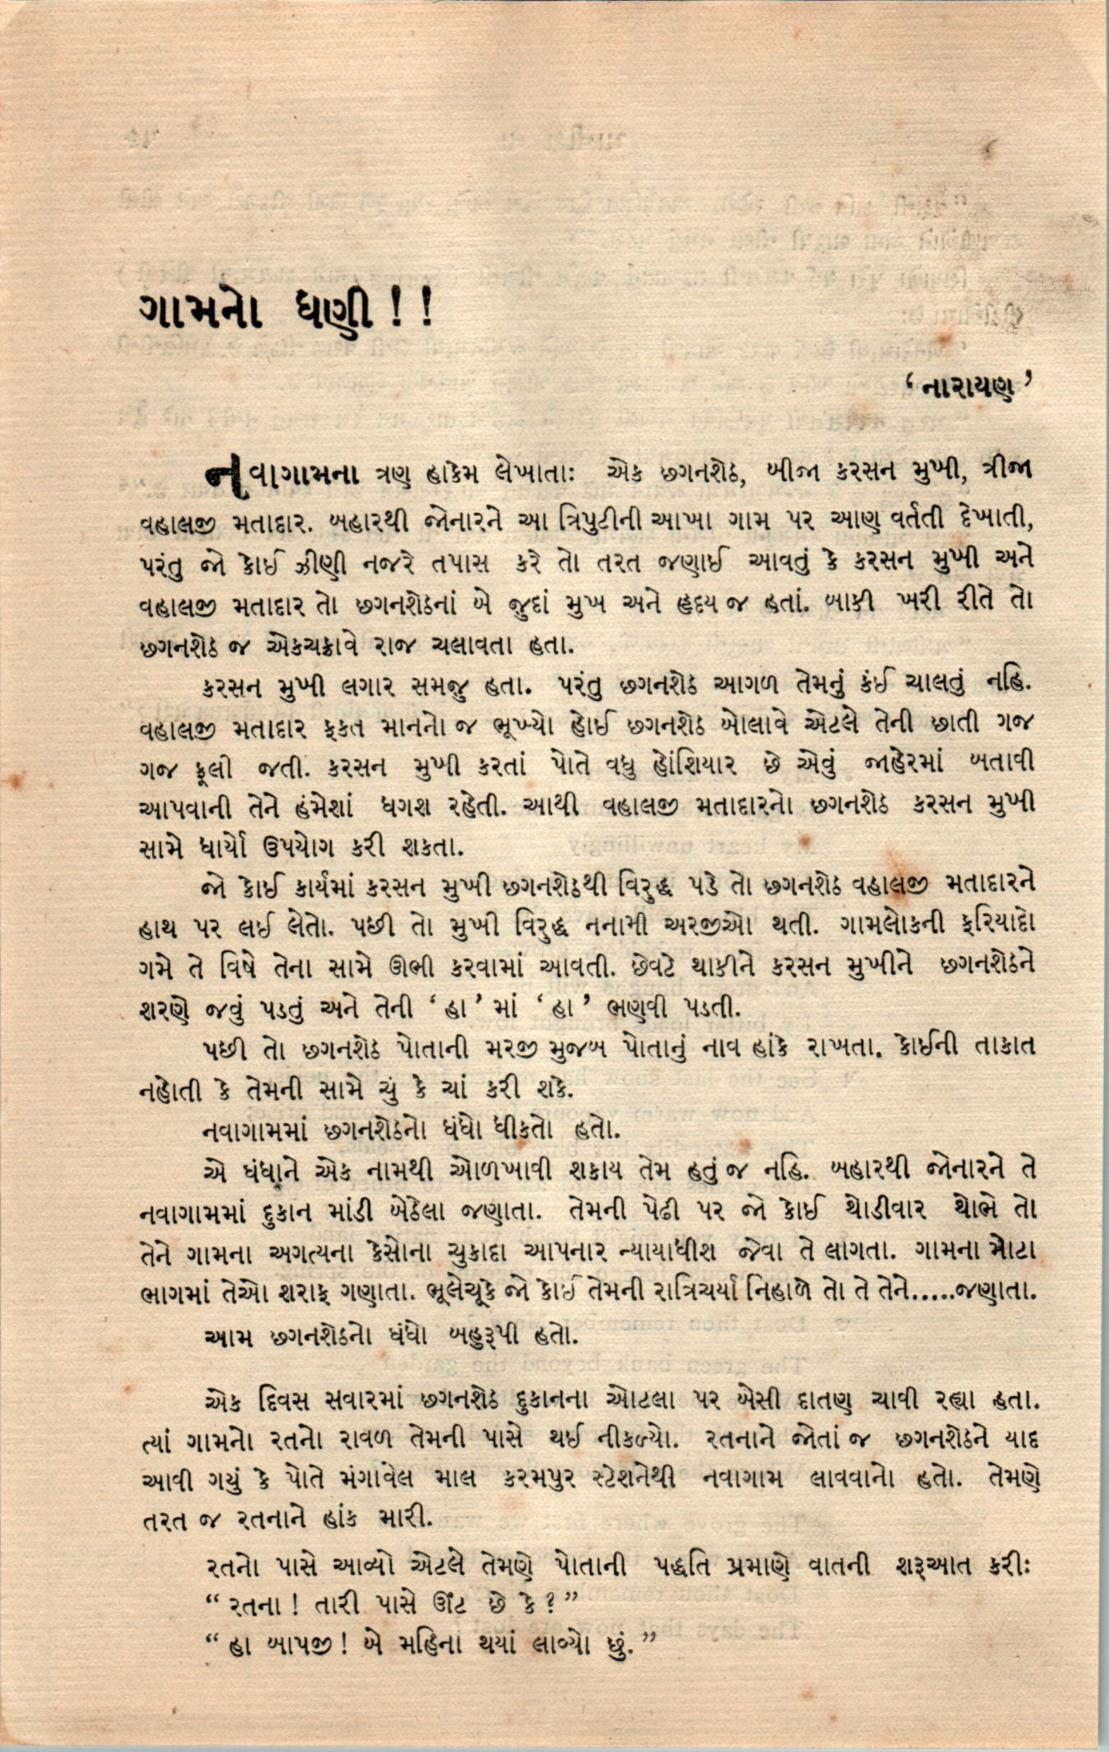 ગામનો ધણી ! !
‘ નારાયણ ’
નવાગામના ત્રણ હાકેમ લેખાતાઃ એક છગનશેઠ, બીજા કરસન મુખી, ત્રીજા
વહાલજી મતાદાર. બહારથી જોનારને આ ત્રિપુટીની આખા ગામ પર આણ વર્તતી દેખાતી,
પરંતુ જો કોઈ ઝીણી નજરે તપાસ કરે તો તરત જણાઈ આવતું કે કરસન મુખી અને
વહાલજી મતાદાર તો છગનશેઠનાં બે જુદાં મુખ અને હૃદય જ હતાં. બાકી ખરી રીતે તો
છગનશેઠ જ એકચક્રાવે રાજ ચલાવતા હતા.
કરસન મુખી લગાર સમજુ હતા. પરંતુ છગનશેઠ આગળ તેમનું કંઈ ચાલતું નહિ.
વહાલજી મતાદાર ફકત માનનો જ ભૂખ્યો હોઈ છગનશેઠ બોલાવે એટલે તેની છાતી ગજ
ગજ ફૂલી જતી. કરસન મુખી કરતાં પોતે વધુ હોંશિયાર છે એવું જાહેરમાં બતાવી
આપવાની તેને હંમેશાં ધગશ રહેતી. આથી વહાલજી મતાદારનો છગનશેઠ કરસન મુખી
સામે ધાર્યો ઉપયોગ કરી શકતા.
જો કોઈ કાર્યમાં કરસન મુખી છગનશેઠથી વિરુદ્ધ પડે તો છગનશેઠ વહાલજી મતાદારને
હાથ પર લઈ લેતો. પછી તો મુખી વિરુદ્ધ નનામી અરજીઓ થતી. ગામલોકની ફરિયાદો
ગમે તે વિષે તેના સામે ઊભી કરવામાં આવતી. છેવટે થાકીને કરસન મુખીને છગનશેઠને
શરણે જવું પડતું અને તેની ‘ હા ’ માં ‘ હા ’ ભણવી પડતી.
પછી તો છગનશેઠ પોતાની મરજી મુજબ પોતાનું નાવ હાંકે રાખતા. કોઈની તાકાત
નહોતી કે તેમની સામે ચું કે ચાં કરી શકે.
નવાગામમાં છગનશેઠનો ધંધો ધીકતો હતો.
એ ધંધાને એક નામથી ઓળખાવી શકાય તેમ હતું જ નહિ. બહારથી જોનારને તે
નવાગામમાં દુકાન માંડી બેઠેલા જણાતા. તેમની પેઢી પર જો કોઈ થોડીવાર થોભે તો
તેને ગામના અગત્યના કેસોના ચુકાદા આપનાર ન્યાયાધીશ જેવા તે લાગતા. ગામના મોટા
ભાગમાં તેઓ શરાફ ગણાતા. ભૂલેચૂકે જો કોઈ તેમની રાત્રિચર્યા નિહાળે તો તે તેને.....જણાતા.
આમ છગનશેઠનો ધંધો બહુરૂપી હતો.
એક દિવસ સવારમાં છગનશેઠ દુકાનના ઓટલા પર બેસી દાતણ ચાવી રહ્યા હતા.
ત્યાં ગામનો રતનો રાવળ તેમની પાસે થઈ નીકળ્યો. રતનાને જોતાં જ છગનશેઠને યાદ
આવી ગયું કે પોતે મંગાવેલ માલ કરમપુર સ્ટેશનેથી નવાગામ લાવવાનો હતો. તેમણે
તરત જ રતનાને હાંક મારી.
રતનો પાસે આવ્યો એટલે તેમણે પોતાની પદ્ધતિ પ્રમાણે વાતની શરૂઆત કરીઃ
“ રતના ! તારી પાસે ઊંટ છે કે ? ”
“ હા બાપજી ! બે મહિના થયાં લાવ્યો છું. ”